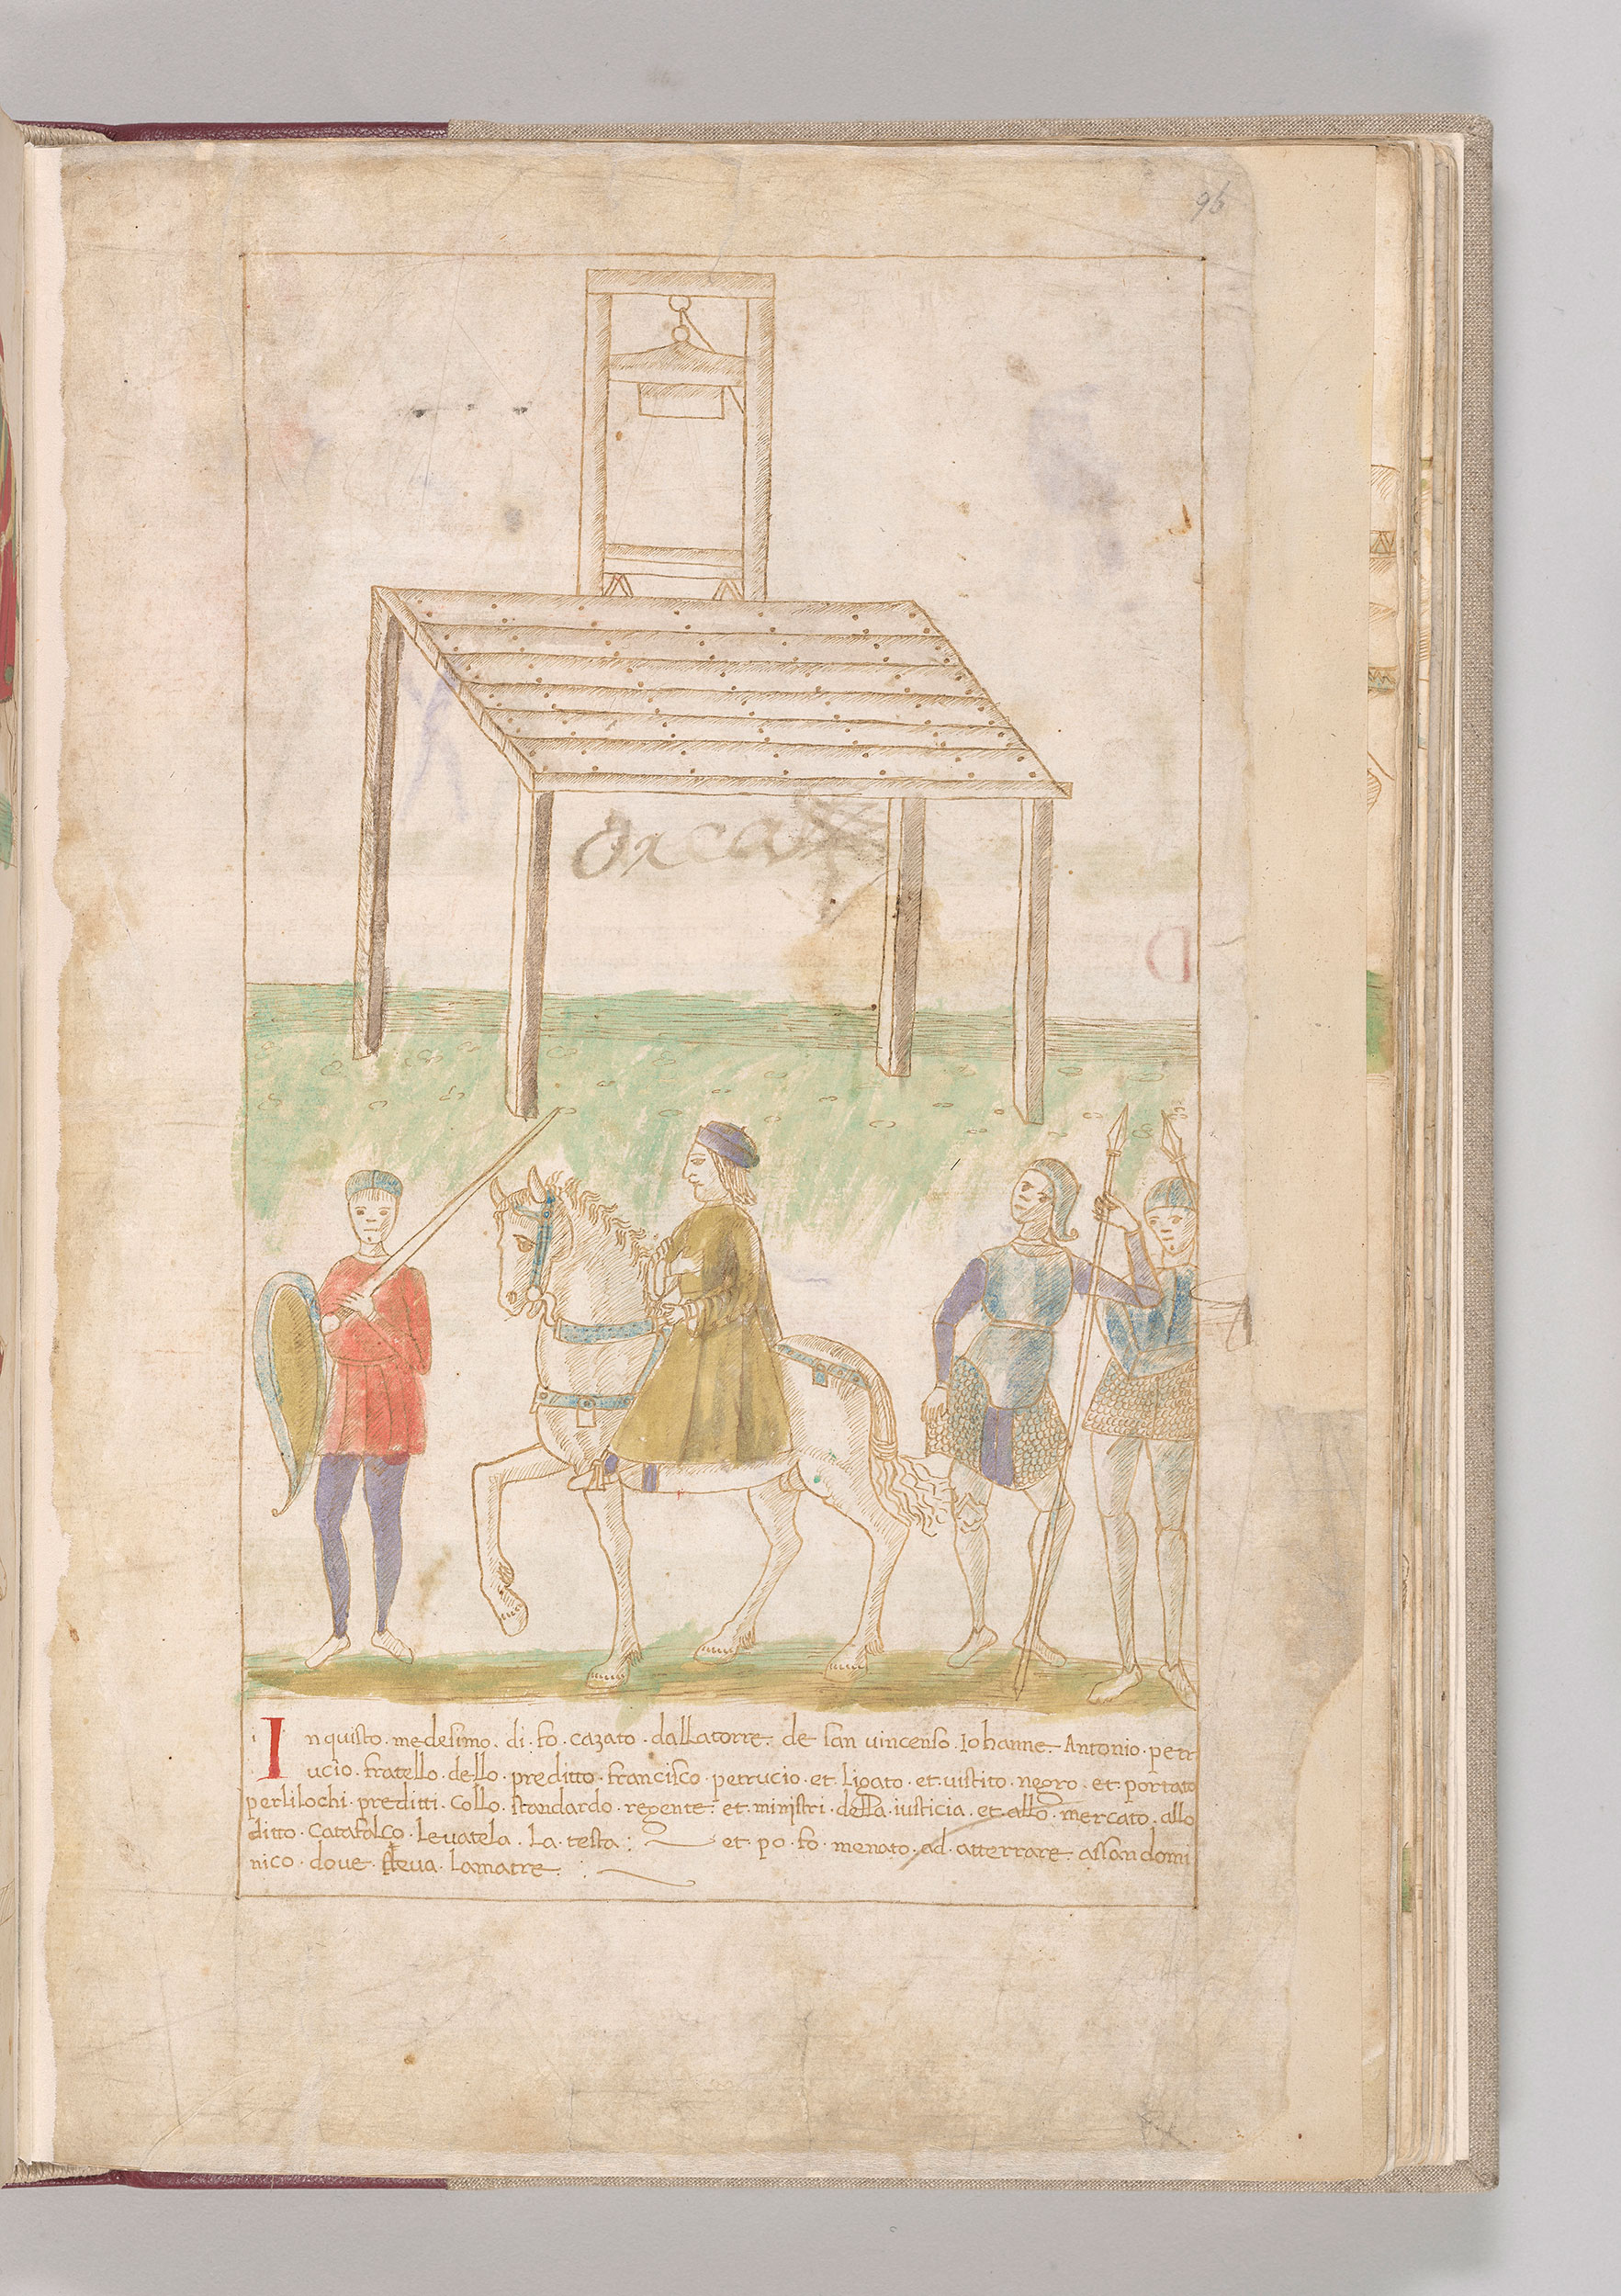 96
Inquisto. medesimo. di. fo. cazato. dallatorre. de san vincenso. Iohanne. Antonio. petr
ucio. fratello. dello. preditto. francisco. petrucio. et. ligato. et. vistito. negro. et. portato
perlilochi. preditti. collo. standardo. regente. et. ministri. della. iusticia. et. allo. mercato. allo
ditto. catafalco. levatela. la. testa: et. po. fo. menato. ad. atterrare. assan domi
nico. dove. steva. lamatre.: